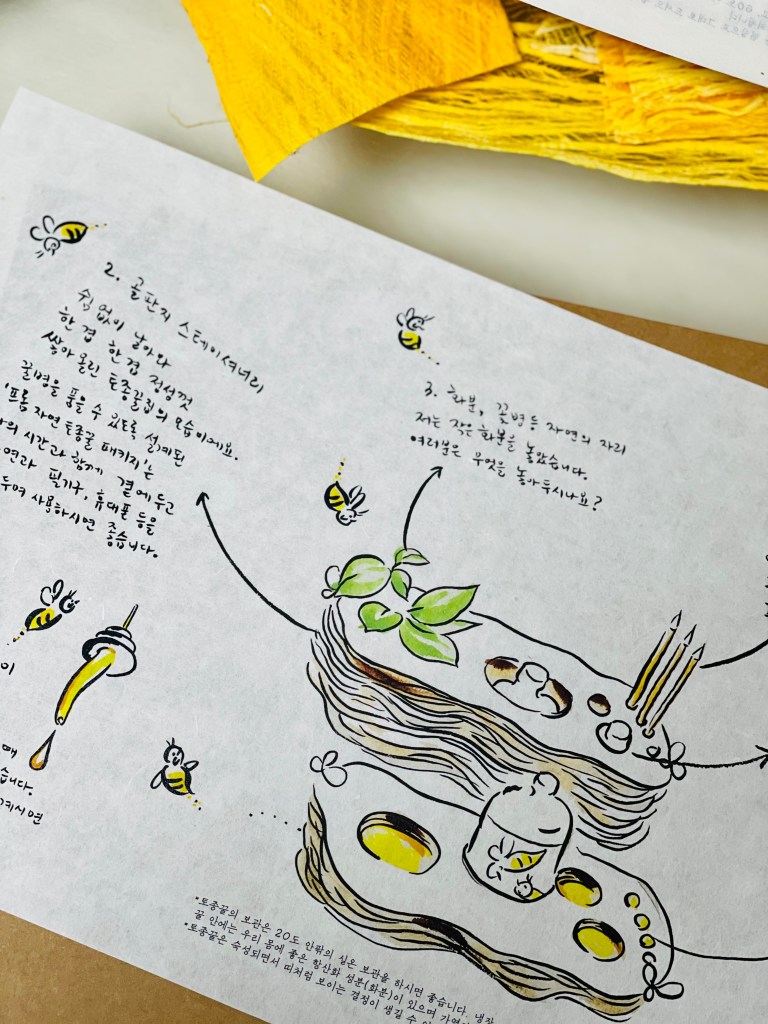 2. 골판지 스테이셔너리
쉼 없이 날아와
한 겹 한 겹 정성껏
쌓아 올린 토종꿀집의 모습이에요.
꿀병을 품을 수 있도록 설계된
'프롬 자연 토종꿀 패키지'는
시간과 함께 곁에 두고
필기구, 휴대폰 등을
두며 사용하시면 좋습니다.
3. 화분, 꽃병 등 자연의 자리
저는 작은 화분을 놓았습니다.
여러분은 무엇을 놓아두시나요?
•토종꿀의 보관은 20도 안팎의 실온 보관을 하시면 좋습니다. 냉장
꿀 안에는 우리 몸에 좋은 항산화 성분(화분)이 있으며
•토종꿀은 숙성되면서 띠처럼 보이는 결정이 생길 수